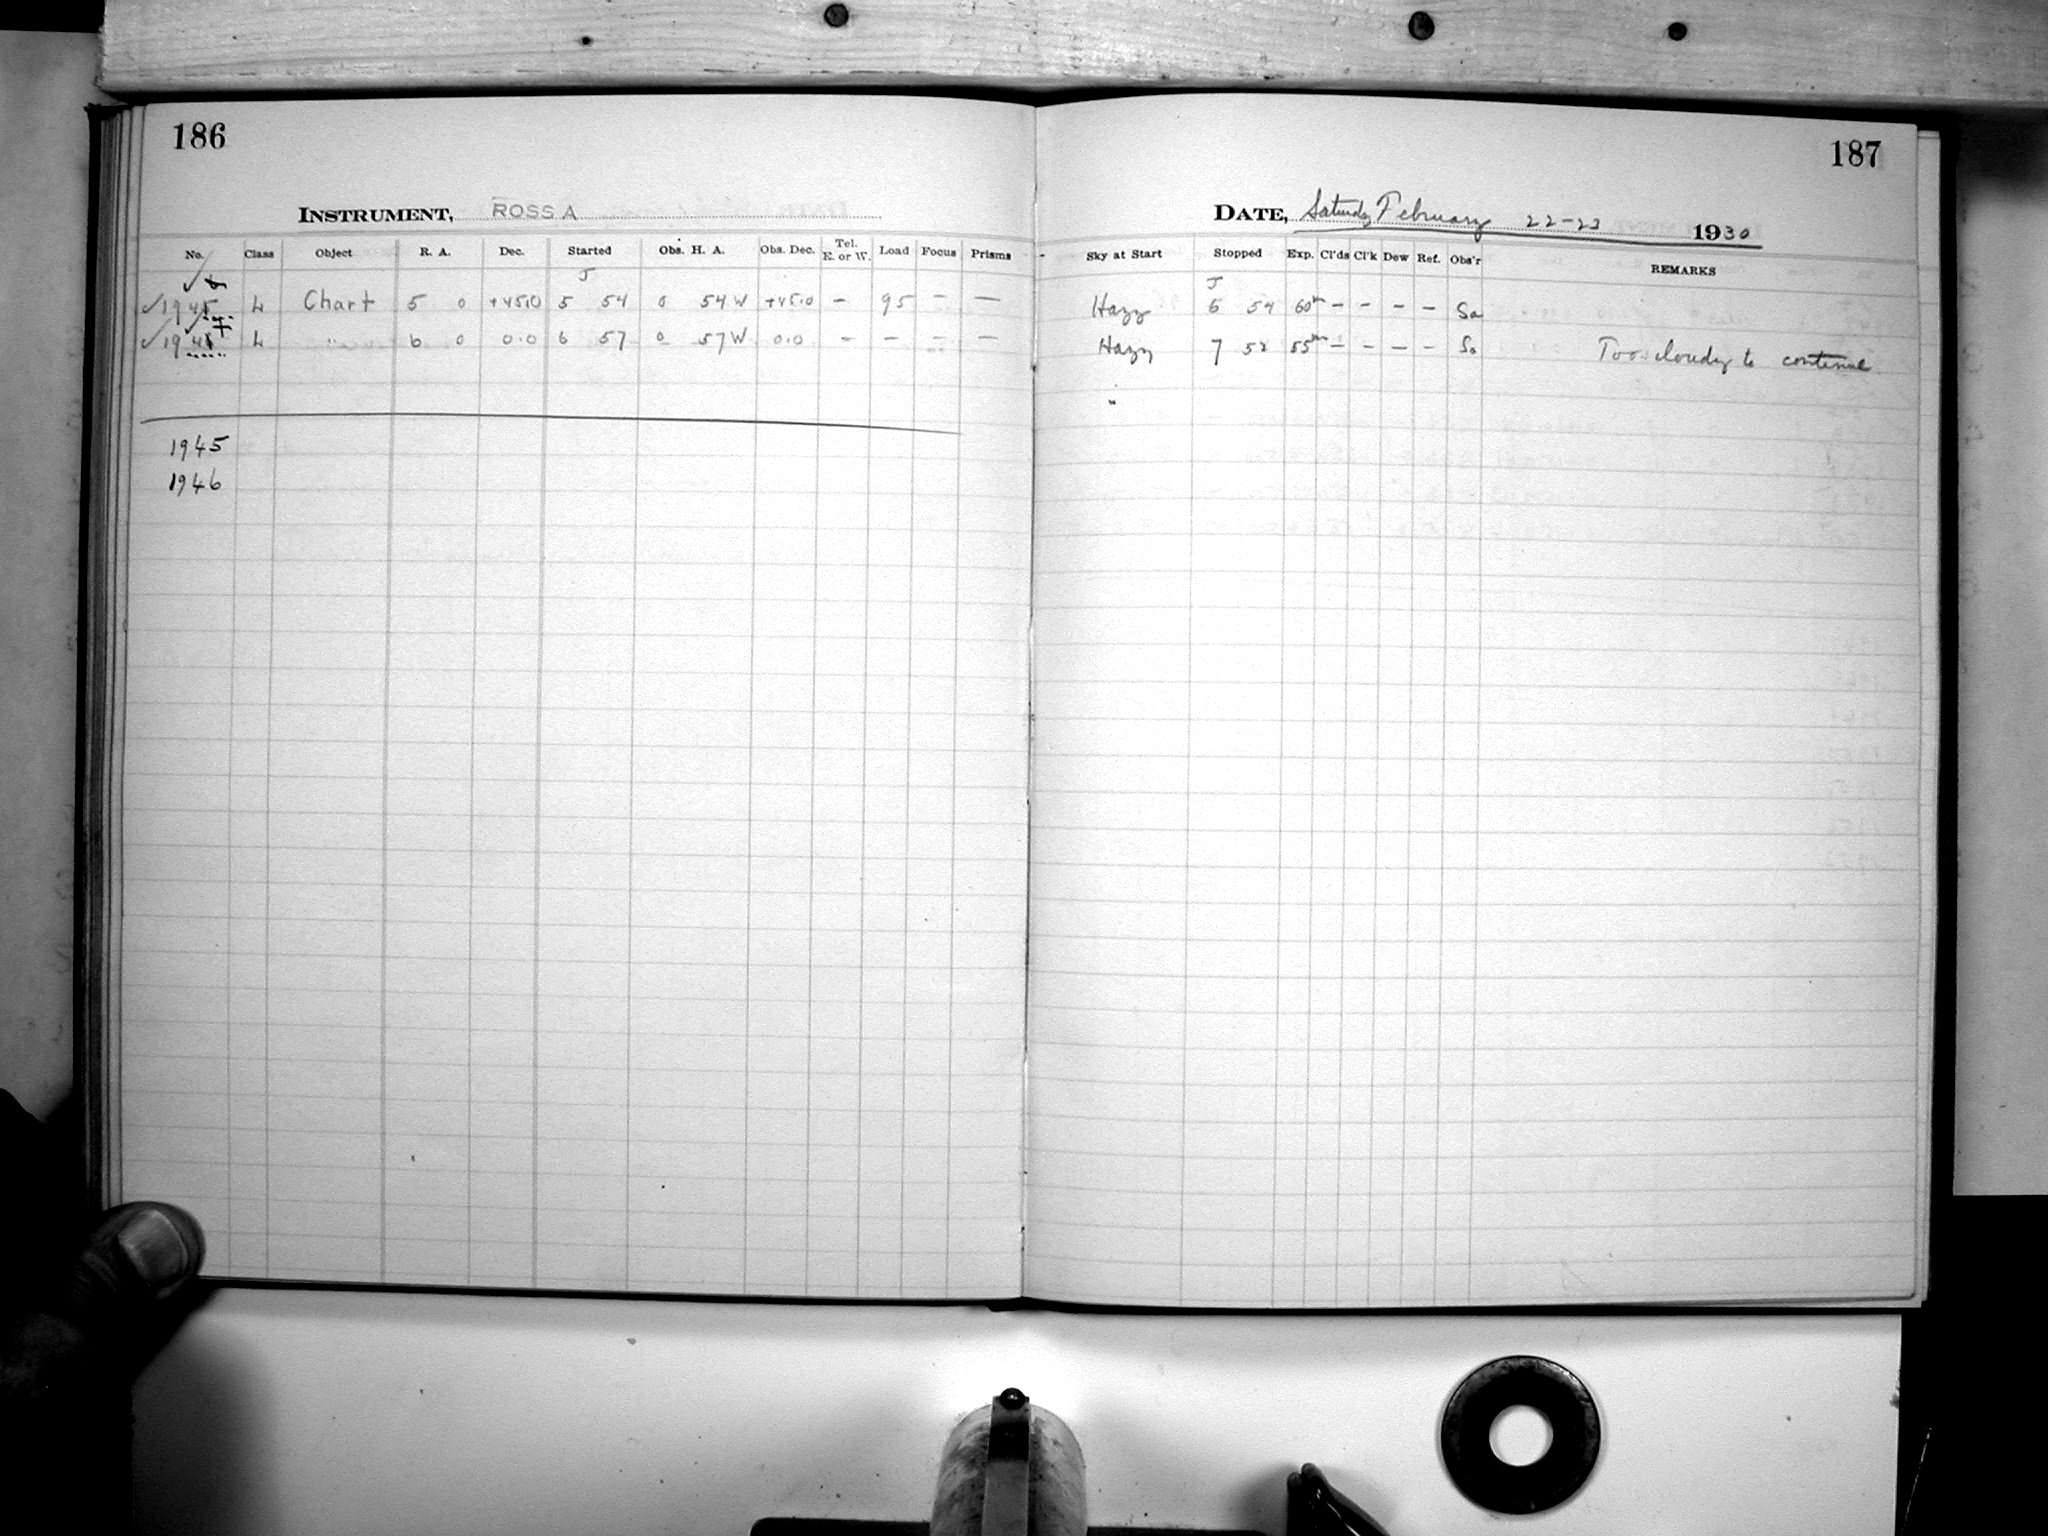 186
INSTRUMENT, ROSS A
No. Class Object R. A. Dec. Started Obs. H. A. Obs. Dec. Tel. E. or W. Load Focus Prisms
J
1945 L Chart 5 0 +45.0 5 54 0 54 W +45.0 – 95 – –
19 L " 6 0 0.0 6 57 0 57 W 0.0 – – – –
1945
1946
187
DATE, Saturday February 22-23 1930
Sky at Start Stopped Exp. Cl'ds Cl'k Dew Ref. Obs'r REMARKS
J
Hazy 6 54 60m – – – – Sa
Hazy 7 52 55m – – – – Sa Too cloudy to continue
"